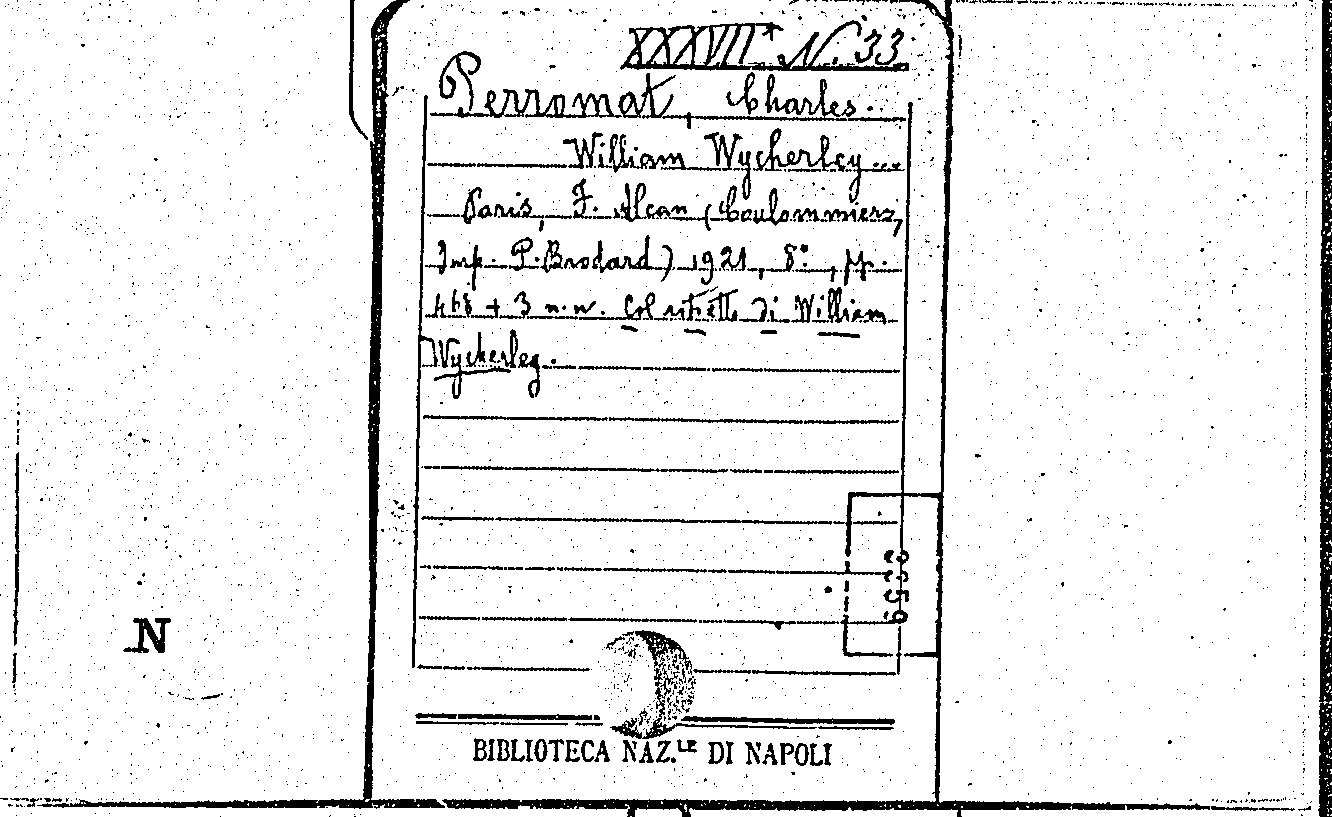 XXXVII* N. 33
Perromat, Charles.
William Wycherley...
Paris, F. Alcan (Coulommiers,
Imp. P. Brodard) 1921, 8°, pp.
468 + 3 n.n. Col ritratto di William
Wycherley.
2259
N
BIBLIOTECA NAZ.LE DI NAPOLI